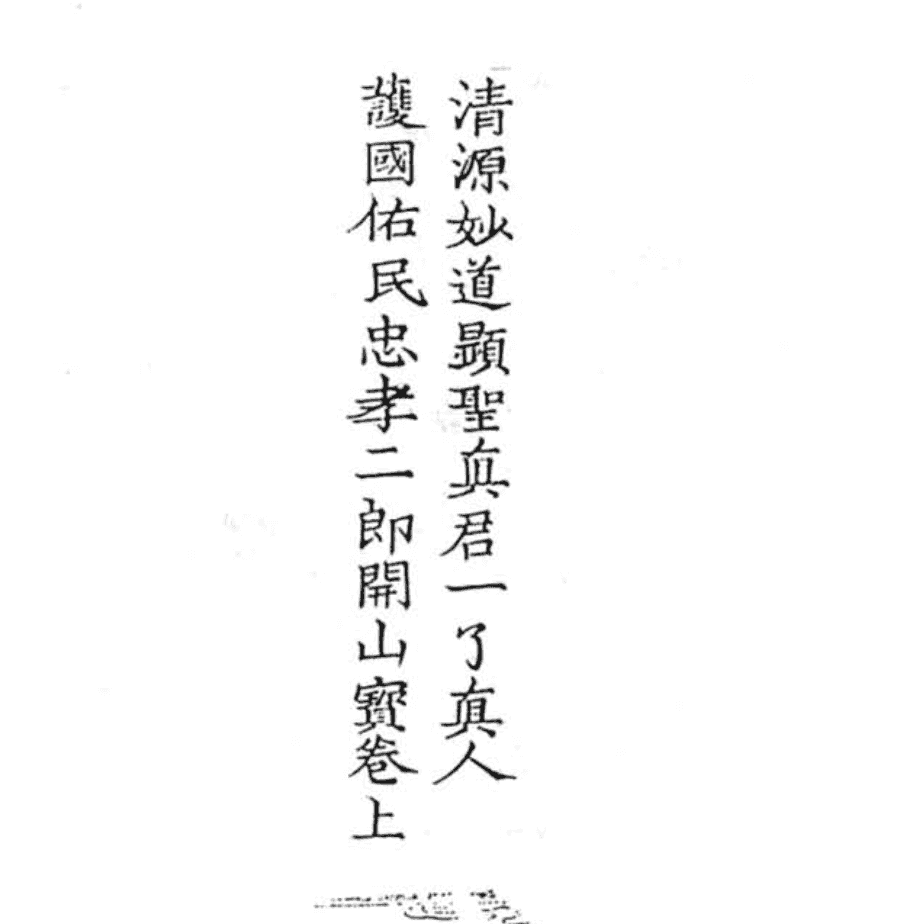 清源妙道顕聖真君一了真人
護國佑民忠孝二郎開山寳卷上